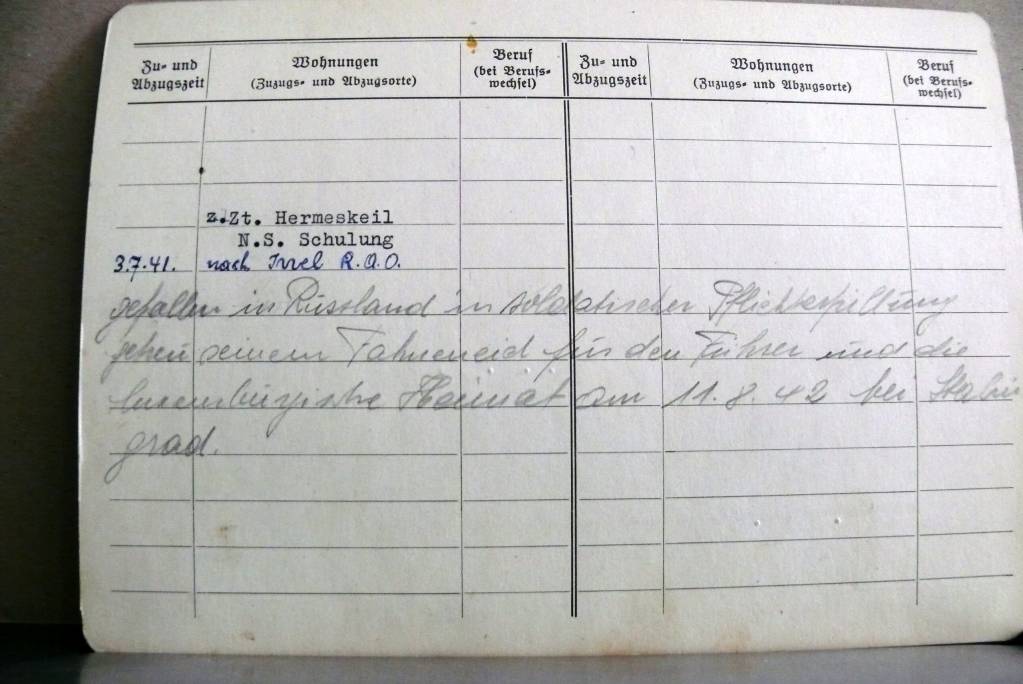 Zu- und Abzugszeit
Wohnungen
(Zuzugs- und Abzugsorte)
Beruf
(bei Berufs-
wechsel)
Zu- und Abzugszeit
Wohnungen
(Zuzugs- und Abzugsorte)
Beruf
(bei Berufs-
wechsel)
z.Zt. Hermeskeil
N.S. Schulung
3.7.41. nach Irrel R.A.D.
gefallen in Russland in soldatischer Pflichterfüllung
seinem Fahneneid für den Führer und die
luxemburgische Heimat am 11.8.42 bei
grad.